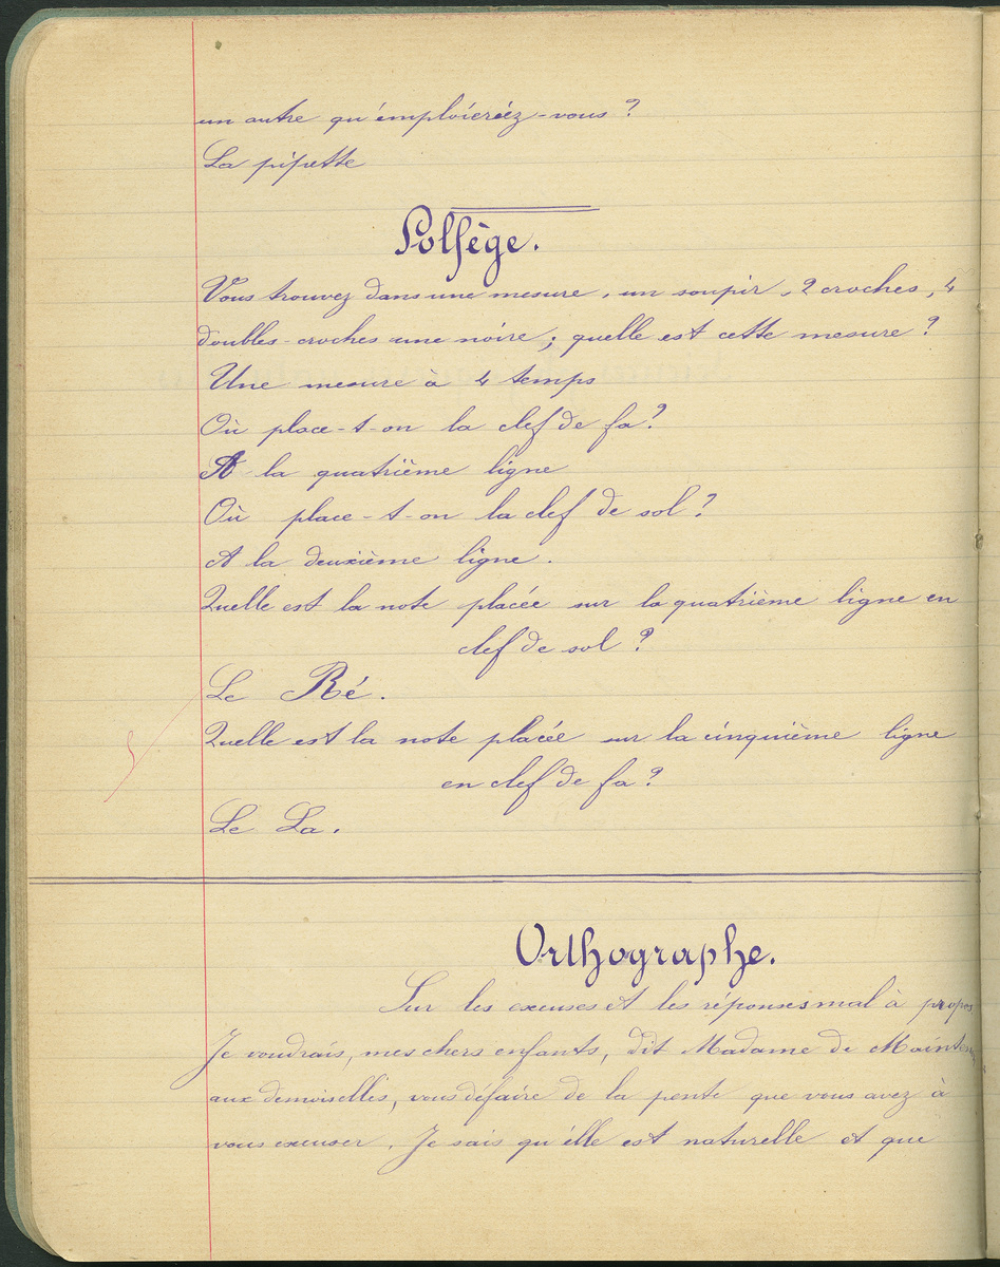 un autre qu'emploieriez-vous ?
La pipette
Solfège.
Vous trouvez dans une mesure, un soupir, 2 croches, 4
doubles-croches une noire ; quelle est cette mesure ?
Une mesure à 4 temps
Où place-t-on la clef de fa ?
A la quatrième ligne
Où place-t-on la clef de sol ?
A la deuxième ligne.
Quelle est la note placée sur la quatrième ligne en
clef de sol ?
Le Ré.
Quelle est la note placée sur la cinquième ligne
en clef de fa ?
Le La.
Orthographe.
Sur les excuses et les réponses mal à propos
Je voudrais, mes chers enfants, dit Madame de Mainten
aux demoiselles, vous défaire de la pente que vous avez à
vous excuser. Je sais qu'elle est naturelle et que